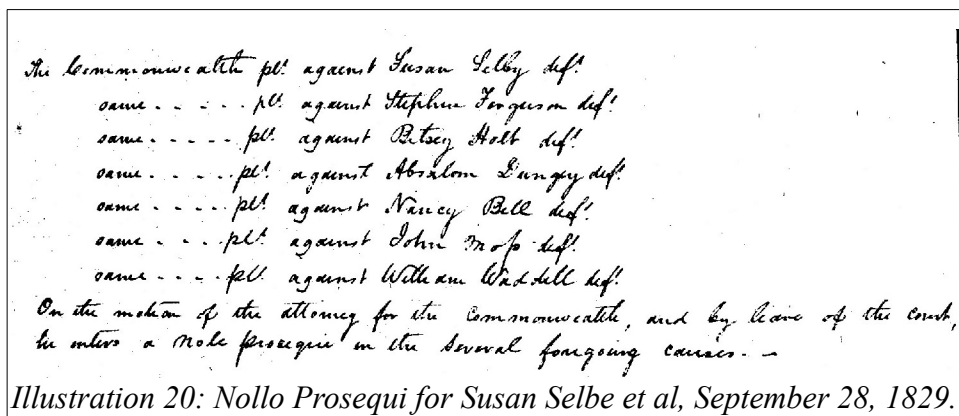 The Commonwealth plt. against Susan Selby deft.
same - - - - - plt. against Stephen Ferguson deft.
same - - - - - plt. against Betsey Holt deft.
same - - - - plt. against Absalom Dungey deft.
same - - - - plt. against Nancy Bell deft.
same - - - plt. against John Moss deft.
same - - - - plt. against William Waddell deft.
On the motion of the attorney for the Commonwealth, and by leave of the court,
he enters a nole proseque in the several foregoing causes. -
Illustration 20: Nollo Prosequi for Susan Selbe et al, September 28, 1829.